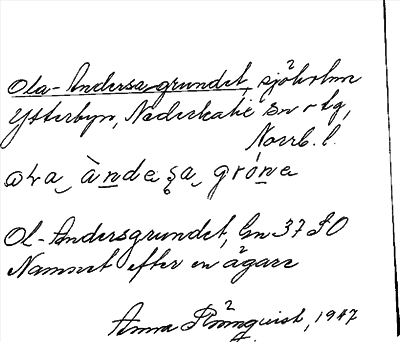 Ola-Andersagrundet, sjöholme
Ytterbyn, Nederkalix sn o tg,
Norrb. l.
Ol-Andersgrundet, Gn 37 SO
Namnet efter en ägare
Anna Strömquist, 1947